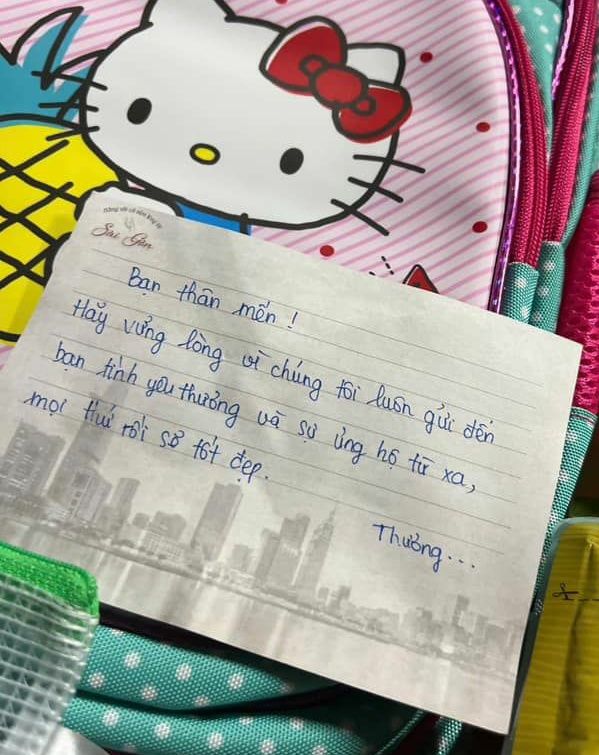 Sài Gòn
Bạn thân mến !
Hãy vững lòng vì chúng tôi luôn gửi đến
bạn tình yêu thương và sự ủng hộ từ xa,
mọi thứ rồi sẽ tốt đẹp.
Thương...